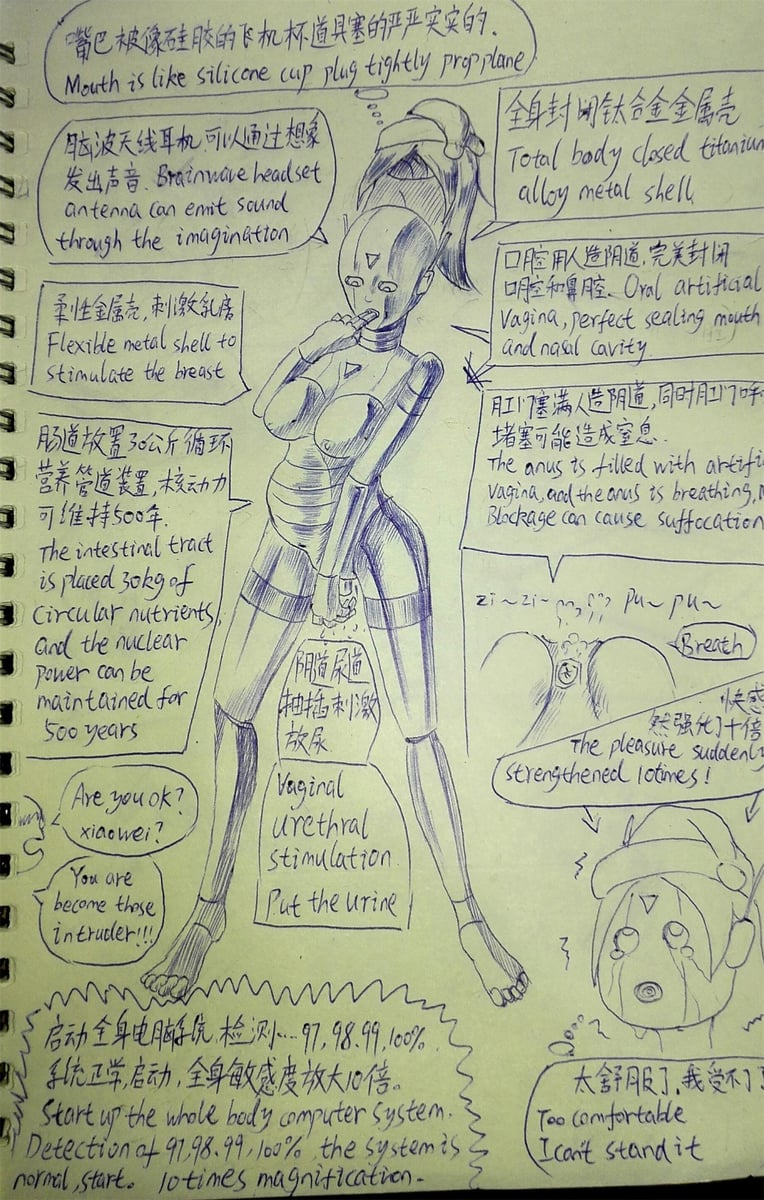 嘴巴被像硅胶的飞机杯道具塞的严严实实的.
Mouth is like silicone cup plug tightly prop plane
脑波天线耳机,可以通过想象
发出声音. Brainwave headset
antenna can emit sound
through the imagination
全身封闭钛合金金属壳
Total body closed titanium
alloy metal shell
柔性金属壳,刺激乳房
Flexible metal shell to
stimulate the breast
口腔用人造阴道,完美封闭
口腔和鼻腔. Oral artificial
Vagina, perfect sealing mouth
and nasal cavity
肛门塞满人造阴道,同时肛门呼
堵塞可能造成窒息.
The anus is filled with artifi
Vagina, and the anus is breathing,
Blockage can cause suffocation
肠道放置30公斤循环
营养管道装置,核动力
可维持500年.
The intestinal tract
is placed 30kg of
Circular nutrients,
and the nuclear
power can be
maintained for
500 years
zi~zi~ pu~ pu~
Breath
阴道尿道
抽插刺激
放尿
Vaginal
urethral
stimulation.
Put the urine
快感
然强化了十倍
The pleasure suddenly
strengthened 10times!
Are you ok?
xiaowei?
You are
become those
intruder!!!
启动全身电脑系统,检测小...97,98.99,100%.
系统正常,启动,全身敏感度放大10倍。
Start up the whole body computer system.
Detection of 97,98.99,100%, the system is
normal, start. 10 times magnification.
太舒服了,我受不了
Too comfortable
I can't stand it